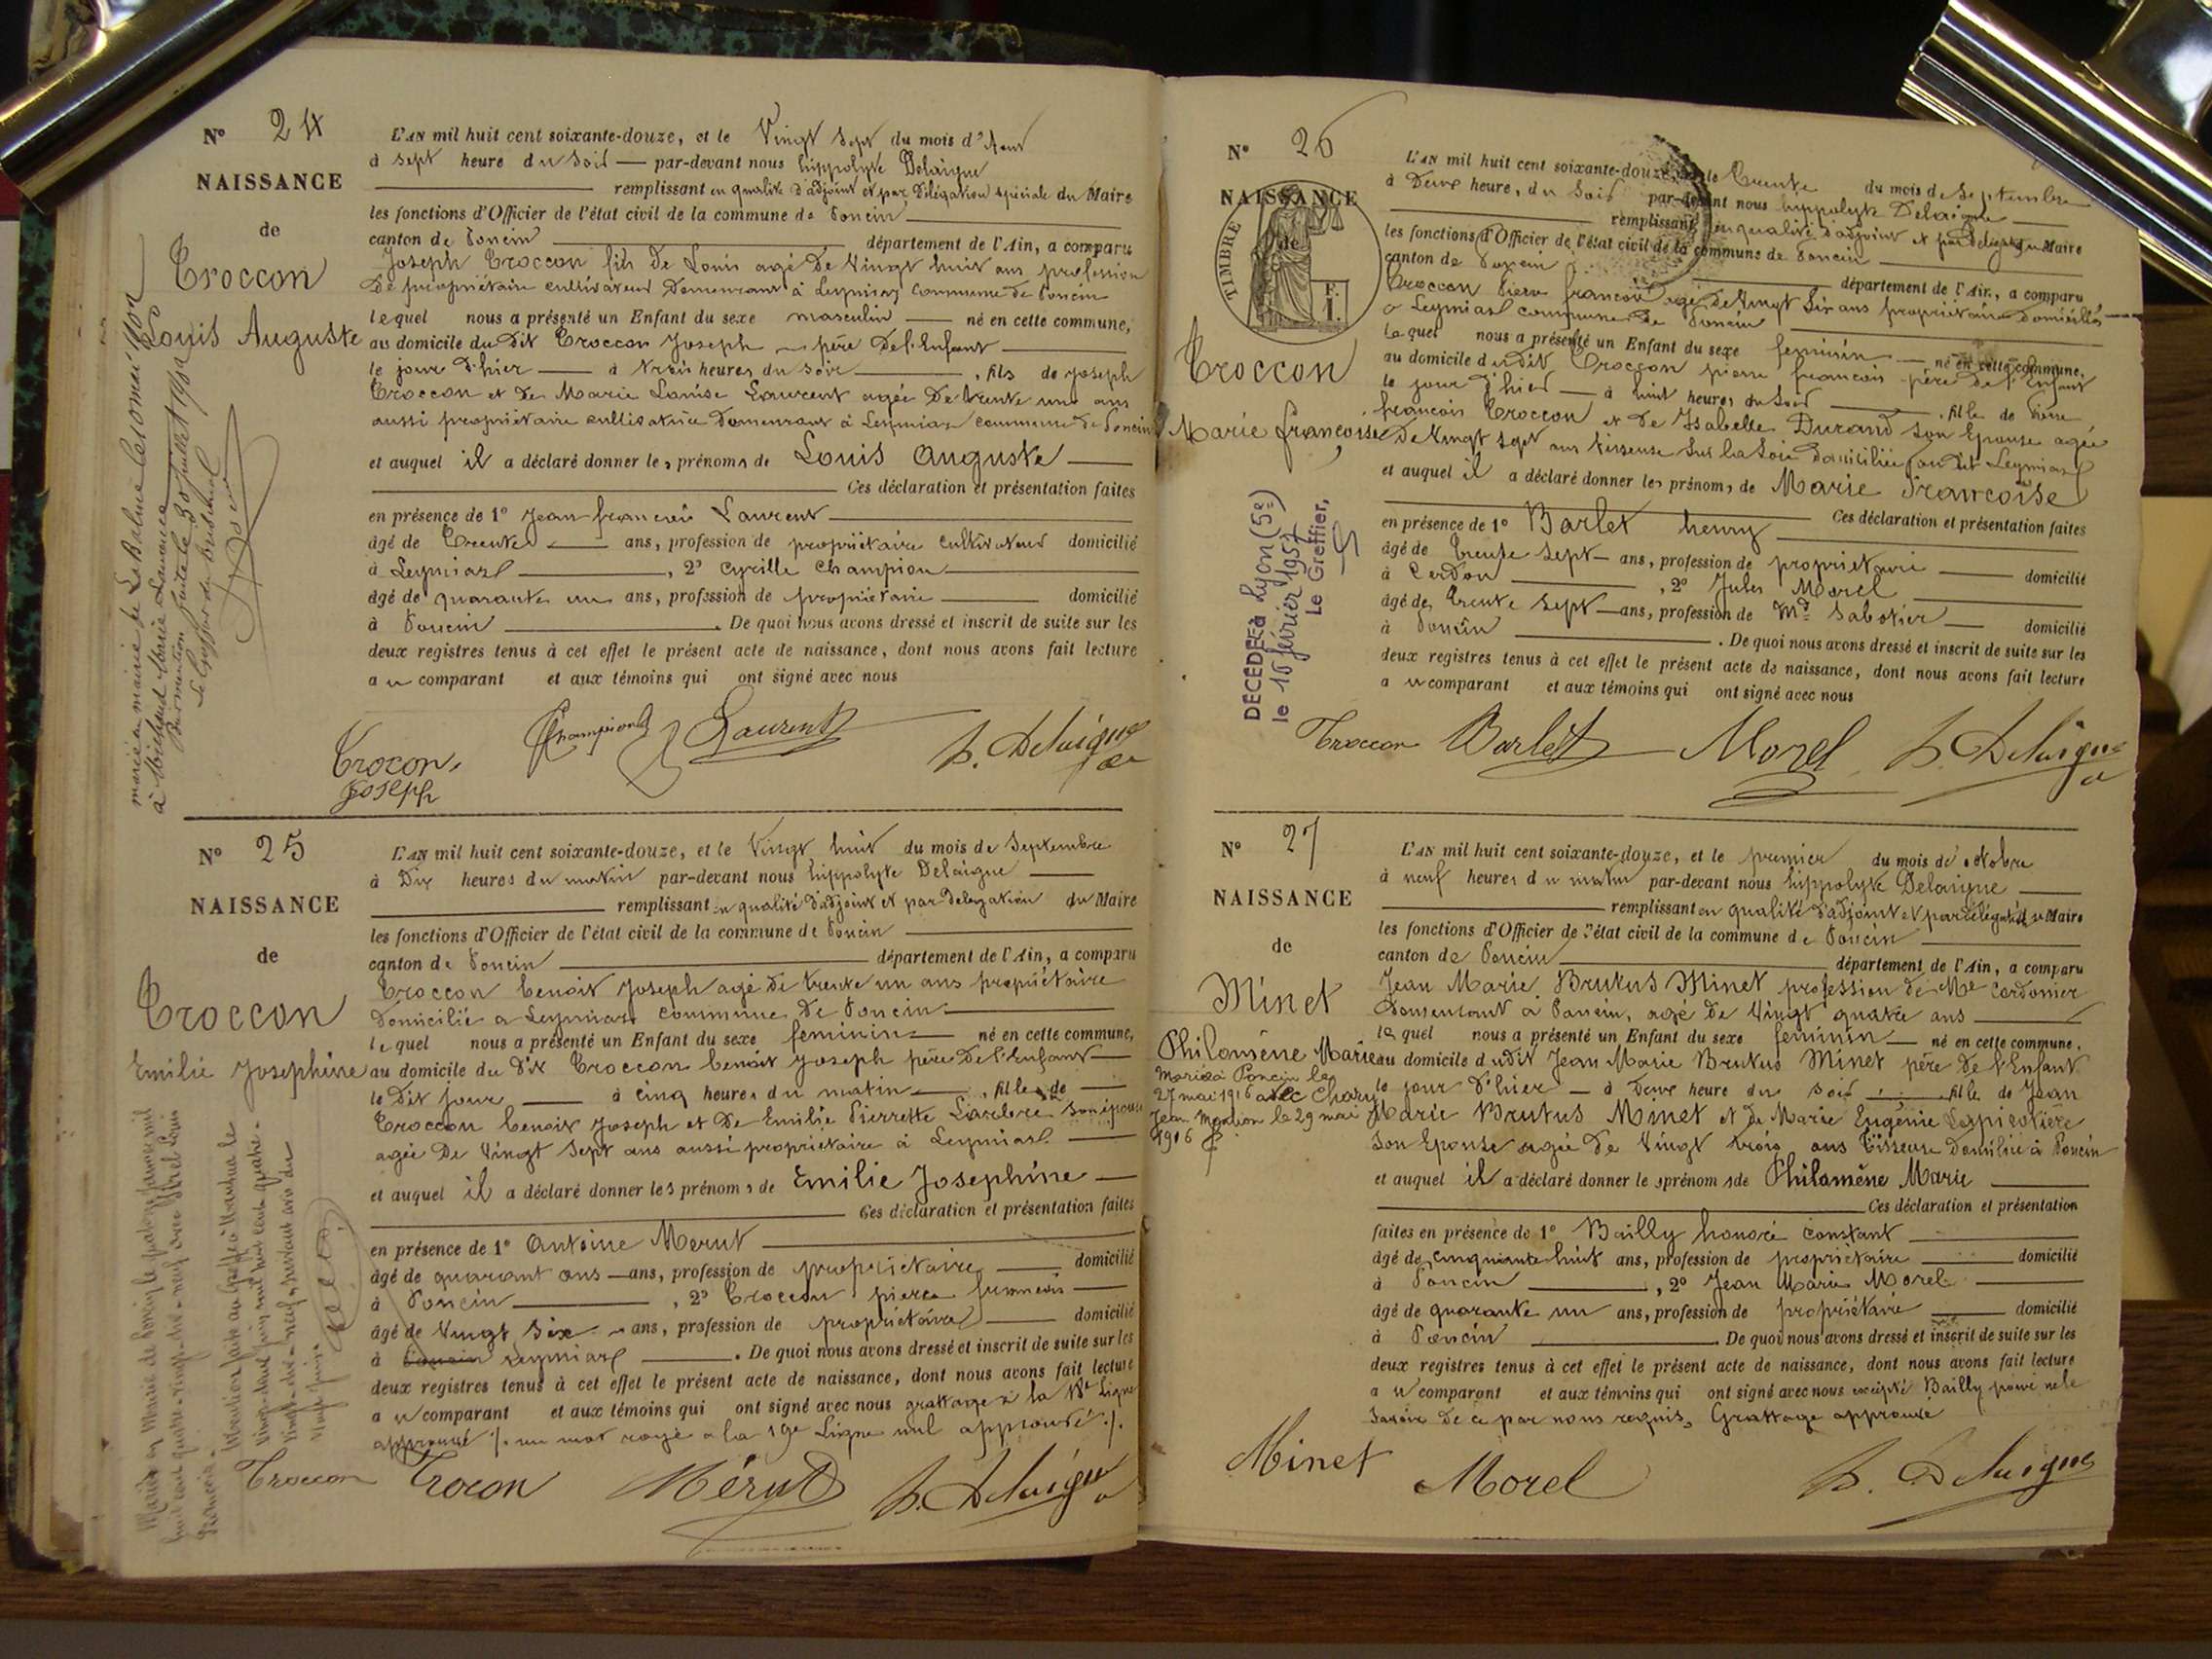 N° 24
NAISSANCE
de
Troccon
Louis Auguste
L'AN mil huit cent soixante-douze, et le Vingt Sept du mois d'Aout
à Sept heure du Soir par-devant nous hippolyte Delaigue
remplissant en qualité d'adjoint et par Délégation spéciale du Maire
les fonctions d'Officier de l'état civil de la commune de Poncin
canton de Poncin département de l'Ain, a comparu
Joseph Troccon fils de Louis agé de Vingt huit ans profession
de propriétaire cultivateur Demeurant à Leymiaz Commune de Poncin
lequel nous a présenté un Enfant du sexe masculin né en cette commune,
au domicile du dit Troccon Joseph père de l'Enfant
le jour d'hier à trois heures du Soir , fils de Joseph
Troccon et de Marie Louise Laurent agée De trente un ans
aussi propriétaire cultivatrice Demeurant à Leymiaz Commune de Poncin
et auquel il a déclaré donner les prénoms de Louis Auguste
Ces déclaration et présentation faites
en présence de 1° Jean françois Laurent
âgé de Trente ans, profession de propriétaire Cultivateur domicilié
à Leymiaz , 2° Cyrille Champion
âgé de quarante un ans, profession de propriétaire domicilié
à Poncin . De quoi nous avons dressé et inscrit de suite sur les
deux registres tenus à cet effet le présent acte de naissance, dont nous avons fait lecture
a u comparant et aux témoins qui ont signé avec nous
Trocon Joseph Champion Laurent h. Delaigue
N° 25
NAISSANCE
de
Troccon
Emilie Josephine
L'AN mil huit cent soixante-douze, et le Vingt huit du mois de Septembre
à Dix heures du matin par-devant nous hippolyte Delaigue
remplissant en qualité d'adjoint et par Delegation du Maire
les fonctions d'Officier de l'état civil de la commune de Poncin
canton de Poncin département de l'Ain, a comparu
Troccon benoit Joseph agé de trente un ans propriétaire
Domicilié a Leymiaz Commune de Poncin
lequel nous a présenté un Enfant du sexe feminin né en cette commune,
au domicile du dit Troccon benoit Joseph père De l'Enfant
le Dit jour à cinq heures du matin , fille de
Troccon benoit Joseph et De Emilie Pierrette son épouse
agée De Vingt Sept ans aussi propriétaire à Leymiaz
et auquel il a déclaré donner les prénoms de Emilie Josephine
Ces déclaration et présentation faites
en présence de 1° Antoine Merut
âgé de quarant ans ans, profession de propriétaire domicilié
à Poncin , 2° Troccon pierre francois
âgé de Vingt Six ans, profession de propriétaire domicilié
à Poncin Leymiaz . De quoi nous avons dressé et inscrit de suite sur les
deux registres tenus à cet effet le présent acte de naissance, dont nous avons fait lecture
a u comparant et aux témoins qui ont signé avec nous grattage à la ligne
approuvé /. un mot rayé a la 19e Ligne nul approuvé ./.
Troccon Trocon Mérut h. Delaigue
N° 26
NAISSANCE
de
TIMBRE
F.
1.
Troccon
Marie françoise
DÉCÉDÉE à Lyon (5e)
le 16 février 1957
Le Greffier,
L'AN mil huit cent soixante-douze, et le Trente du mois de Septembre
à Deux heure, du Soir par-devant nous hippolyte Delaigue
remplissant en qualité d'adjoint et par Delegation du Maire
les fonctions d'Officier de l'état civil de la commune de Poncin
canton de Poncin département de l'Ain, a comparu
Troccon Pierre francois agé de Vingt Six ans propriétaire Domicilié
a Leymiaz commune de Poncin
lequel nous a présenté un Enfant du sexe feminin né en cette commune,
au domicile du dit Troccon pierre francois père de l'Enfant
le jour d'hier à huit heures du Soir , fille de Pierre
françois Troccon et de Isabelle Durand son Epouse agée
De Vingt Sept ans tisseuse Sur la Soie domiciliée au dit Leymiaz
et auquel il a déclaré donner les prénoms de Marie Francoise
Ces déclaration et présentation faites
en présence de 1° Barlet henry
âgé de trente Sept ans, profession de propriétaire domicilié
à Cerdon , 2° Jules Morel
âgé de trente Sept ans, profession de Md Sabotier domicilié
à Poncin . De quoi nous avons dressé et inscrit de suite sur les
deux registres tenus à cet effet le présent acte de naissance, dont nous avons fait lecture
a u comparant et aux témoins qui ont signé avec nous
Troccon Barlet Morel h. Delaigue
N° 27
NAISSANCE
de
Minet
Philomène Marie
Mariée à Poncin le
27 mai 1916 avec Chary
Jean Mention le 29 mai
1916
L'AN mil huit cent soixante-douze, et le premier du mois de octobre
à neuf heures du matin par-devant nous hippolyte Delaigue
remplissant en qualité d'adjoint et par délégation du Maire
les fonctions d'Officier de l'état civil de la commune de Poncin
canton de Poncin département de l'Ain, a comparu
Jean Marie Brutus Minet profession de Me Cordonier
Demeurant à Poncin, agé De Vingt quatre ans
lequel nous a présenté un Enfant du sexe feminin né en cette commune,
au domicile du dit Jean Marie Brutus Minet père De l'Enfant
le jour d'hier à Deux heure du Soir , fille de Jean
Marie Brutus Minet et de Marie Eugénie
Son Epouse agée De Vingt trois ans Tisseuse Domiliée à Poncin
et auquel il a déclaré donner les prénoms de Philomène Marie
Ces déclaration et présentation
faites en présence de 1° Bailly honoré Constant
âgé de cinquante huit ans, profession de propriétaire domicilié
à Poncin , 2° Jean Marie Morel
âgé de quarante un ans, profession de propriétaire domicilié
à Poncin . De quoi nous avons dressé et inscrit de suite sur les
deux registres tenus à cet effet le présent acte de naissance, dont nous avons fait lecture
a u comparant et aux témoins qui ont signé avec nous excepté Bailly pour ne le
Savoir De ce par nous requis, Grattage approuvé
Minet Morel h. Delaigue